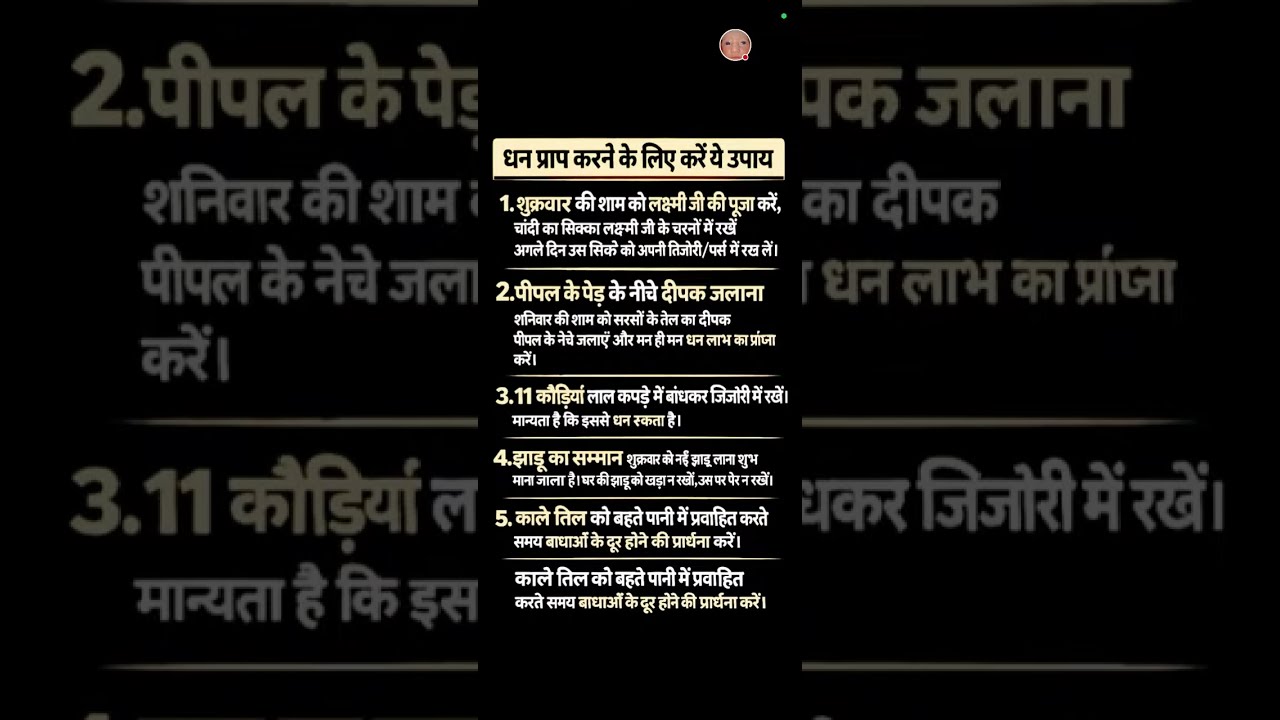 धन प्राप करने के लिए करें ये उपाय
1. शुक्रवार की शाम को लक्ष्मी जी की पूजा करें,
चांदी का सिक्का लक्ष्मी जी के चरनों में रखें
अगले दिन उस सिके को अपनी तिजोरी/पर्स में रख लें।
2. पीपल के पेड़ के नीचे दीपक जलाना
शनिवार की शाम को सरसों के तेल का दीपक
पीपल के नेचे जलाएँ और मन ही मन धन लाभ का
करें।
3. 11 कौड़ियां लाल कपड़े में बांधकर जिजोरी में रखें।
मान्यता है कि इससे धन स्कता है।
4. झाडू का सम्मान शुक्रवार को नई झाडू लाना शुभ
माना जाला है। घर की झाडू को खड़ा न रखों, उस पर पेर न रखें।
5. काले तिल को बहते पानी में प्रवाहित करते
समय बाधाओं के दूर होने की प्रार्धना करें।
काले तिल को बहते पानी में प्रवाहित
करते समय बाधाओं के दूर होने की प्रार्धना करें।
2. पीपल के पेड़
पक जलाना
शनिवार की शाम
का दीपक
पीपल के नेचे
धन लाभ का
करें।
3. 11 कौड़ियां
धकर जिजोरी में रखें।
मान्यता है कि इस